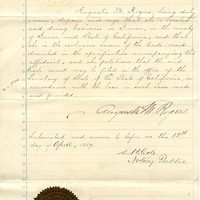 Augusta M. Rogers, being duly
sworn, deposes and says that she is resident
and doing business in Fresno, in the county
of Fresno and State of California, and that
she is the owner of the trade mark
described in the specification
affidavit, and she petitions that the said
trade mark may be filed in the office of the
Secretary of State of the State of California, in
accordance with the law in such case made
and provided.
Augusta M. Rogers
Subscribed and sworn to before me this 13th
day of April, 1889.
S. H. Cole
Notary Public